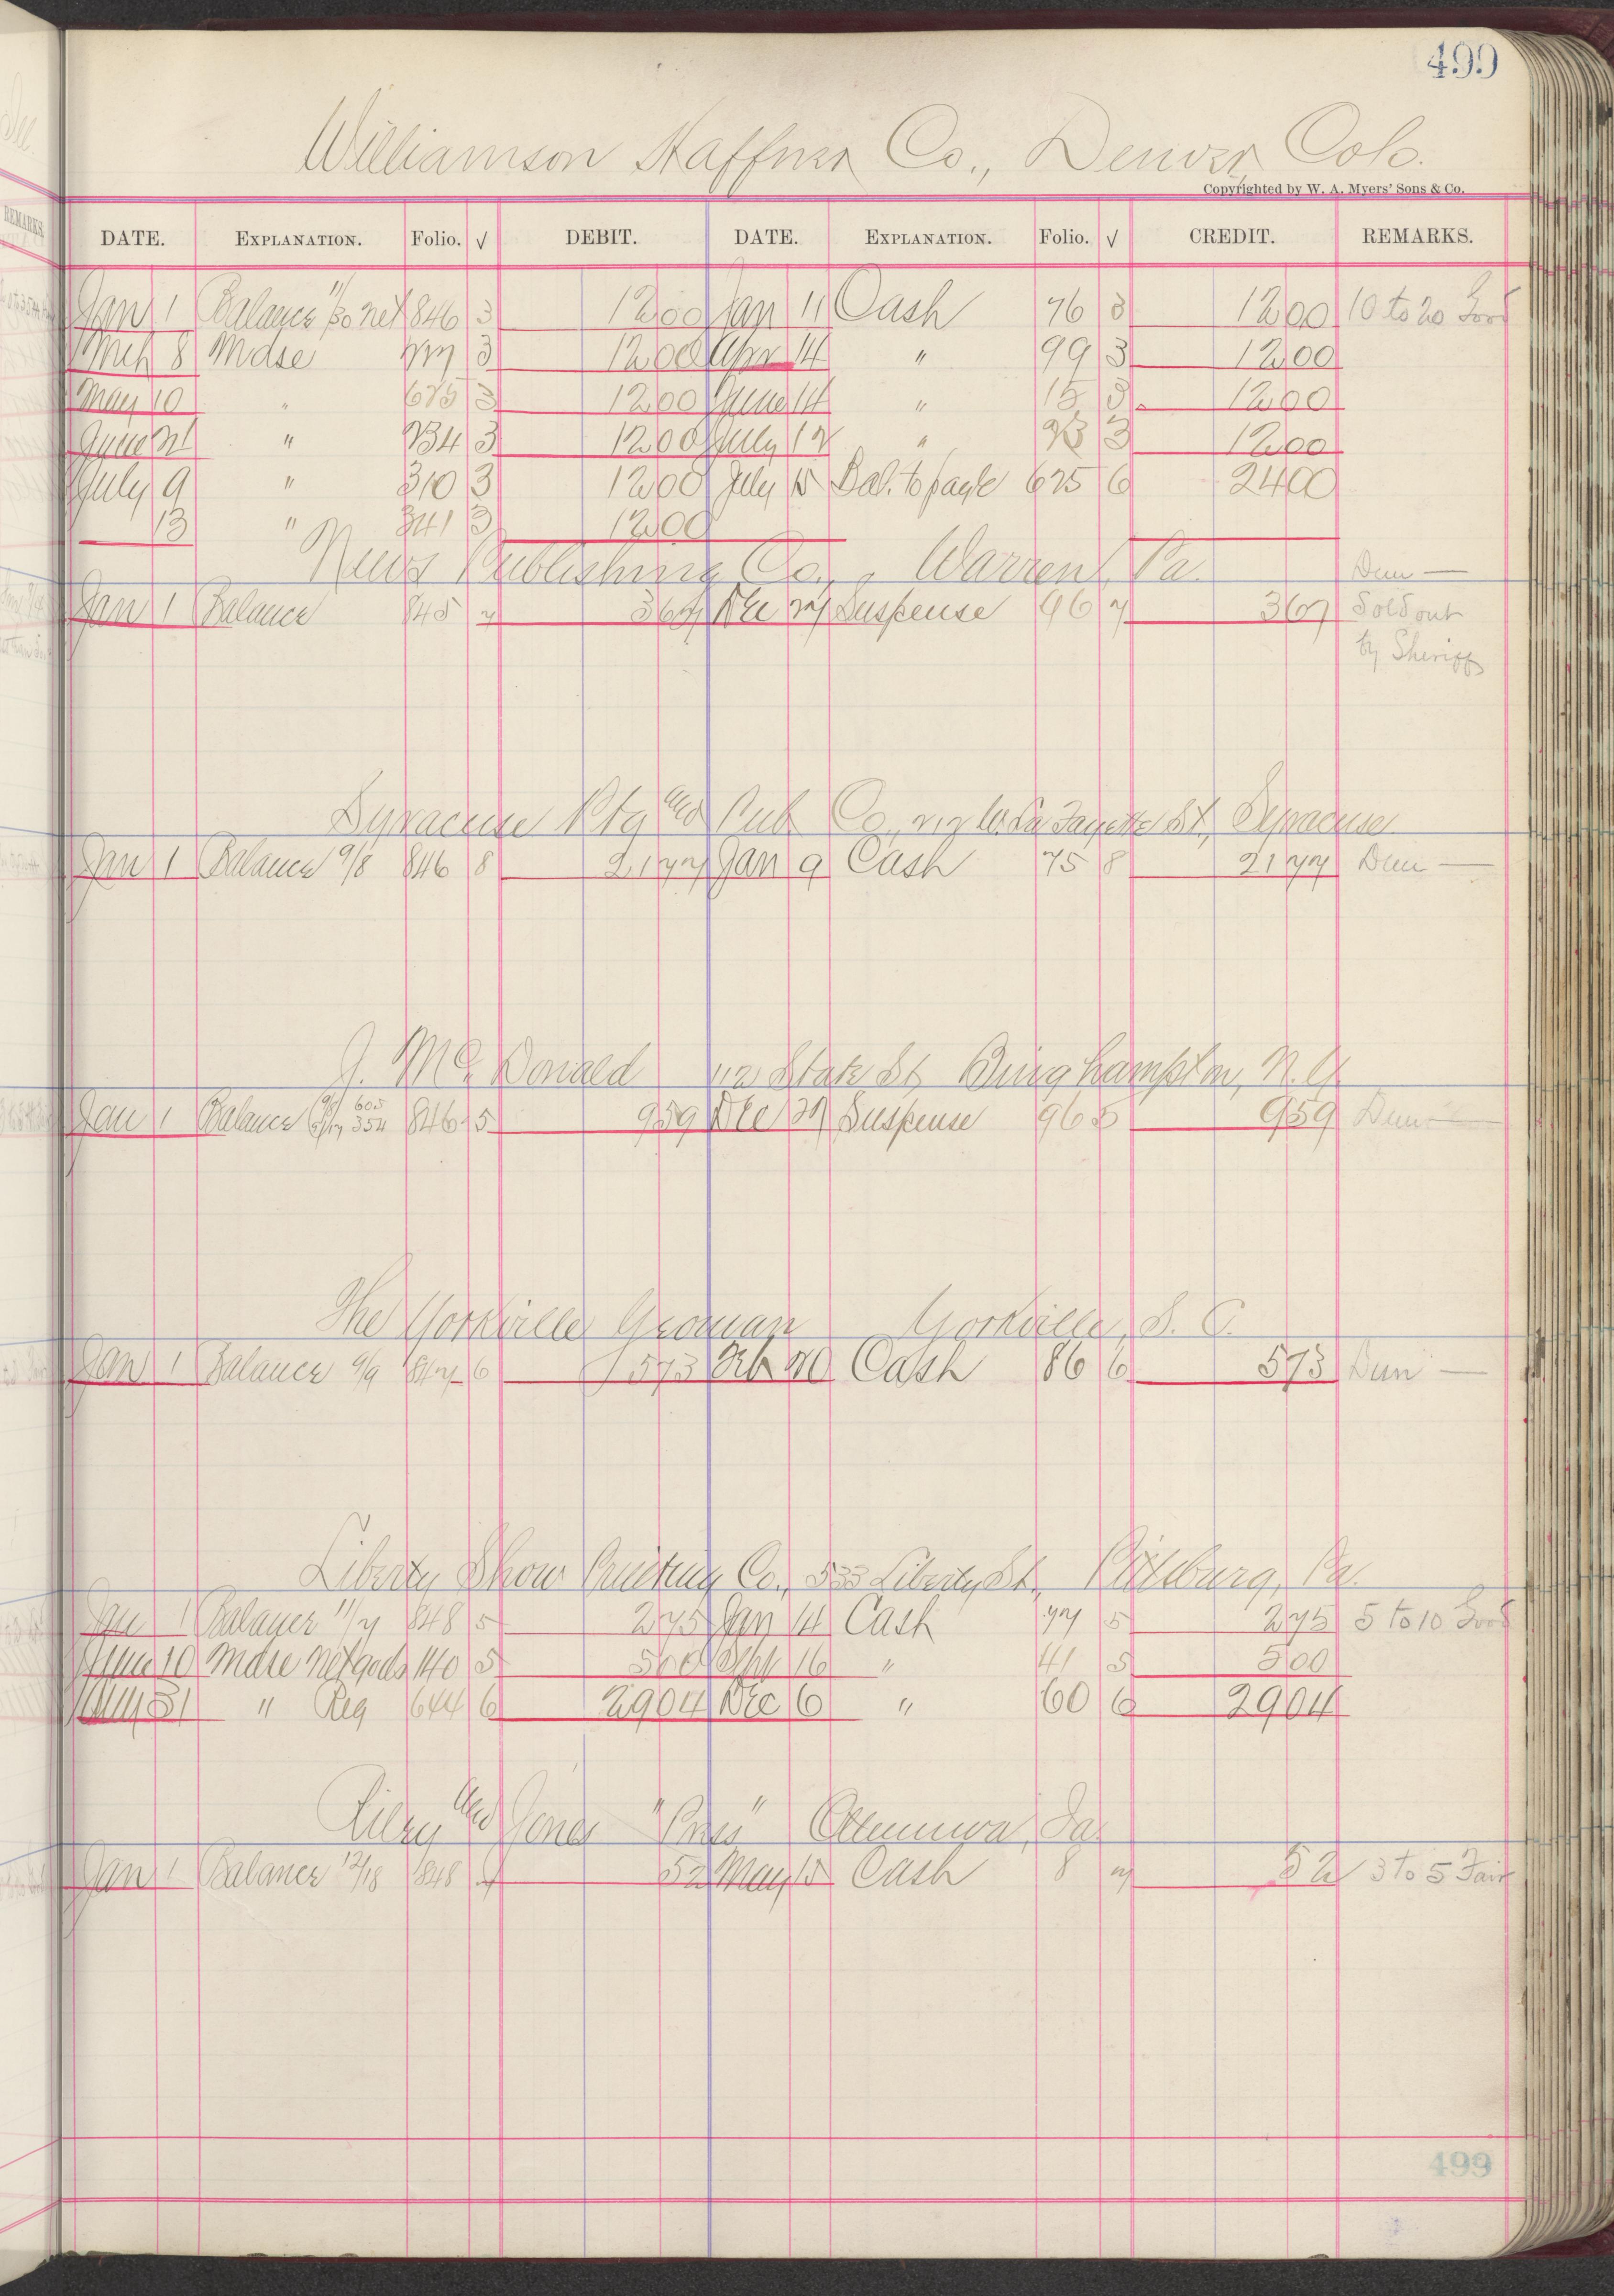 499
Williamson Haffner Co., Denver, Colo.
Copyrighted by W. A. Myers' Sons & Co.
DATE. EXPLANATION. Folio. √ DEBIT. DATE. EXPLANATION. Folio. √ CREDIT. REMARKS.
Jan 1 Balance 11/30 net 846 3 1200 Jan 11 Cash 76 3 1200 10 to 20 Good
Mch 8 Mdse 3 1200 Apr 14 " 99 3 1200
May 10 " 675 3 1200 June 14 " 15 3 1200
June 21 " 234 3 1200 July 12 " 3 1200
July 9 " 310 3 1200 July 15 Bal. to page 625 6 2400
13 " 341 3 1200
News Publishing Co., Warren, Pa.
Dun —
Jan 1 Balance 845 7 367 Dec 27 Suspense 96 7 367 Sold out
by Sheriff
Syracuse Ptg and Pub Co, 212 W. La Fayette St, Syracuse
Jan 1 Balance 9/8 846 8 2177 Jan 9 Cash 75 8 2177 Dun —
J. McDonald 112 State St, Binghampton, N.Y.
Jan 1 Balance 605 354 846 5 959 Dec 27 Suspense 96 5 959 Dun —
The Yorkville Yeoman Yorkville, S. C.
Jan 1 Balance 9/9 847 6 573 Feb 20 Cash 86 6 573 Dun —
Liberty Show Printing Co., 533 Liberty St., Pittsburg, Pa.
Jan 1 Balance 11/7 848 5 275 Jan 14 Cash 77 5 275 5 to 10 Good
June 10 Mdse Net gods 140 5 500 Sept 16 " 41 5 500
Aug 31 " Reg 644 6 2904 Dec 6 " 60 6 2904
Riley and Jones "Press" Ottumwa, Ia.
Jan 1 Balance 12/18 848 7 52 May 15 Cash 8 7 52 3 to 5 Fair
499